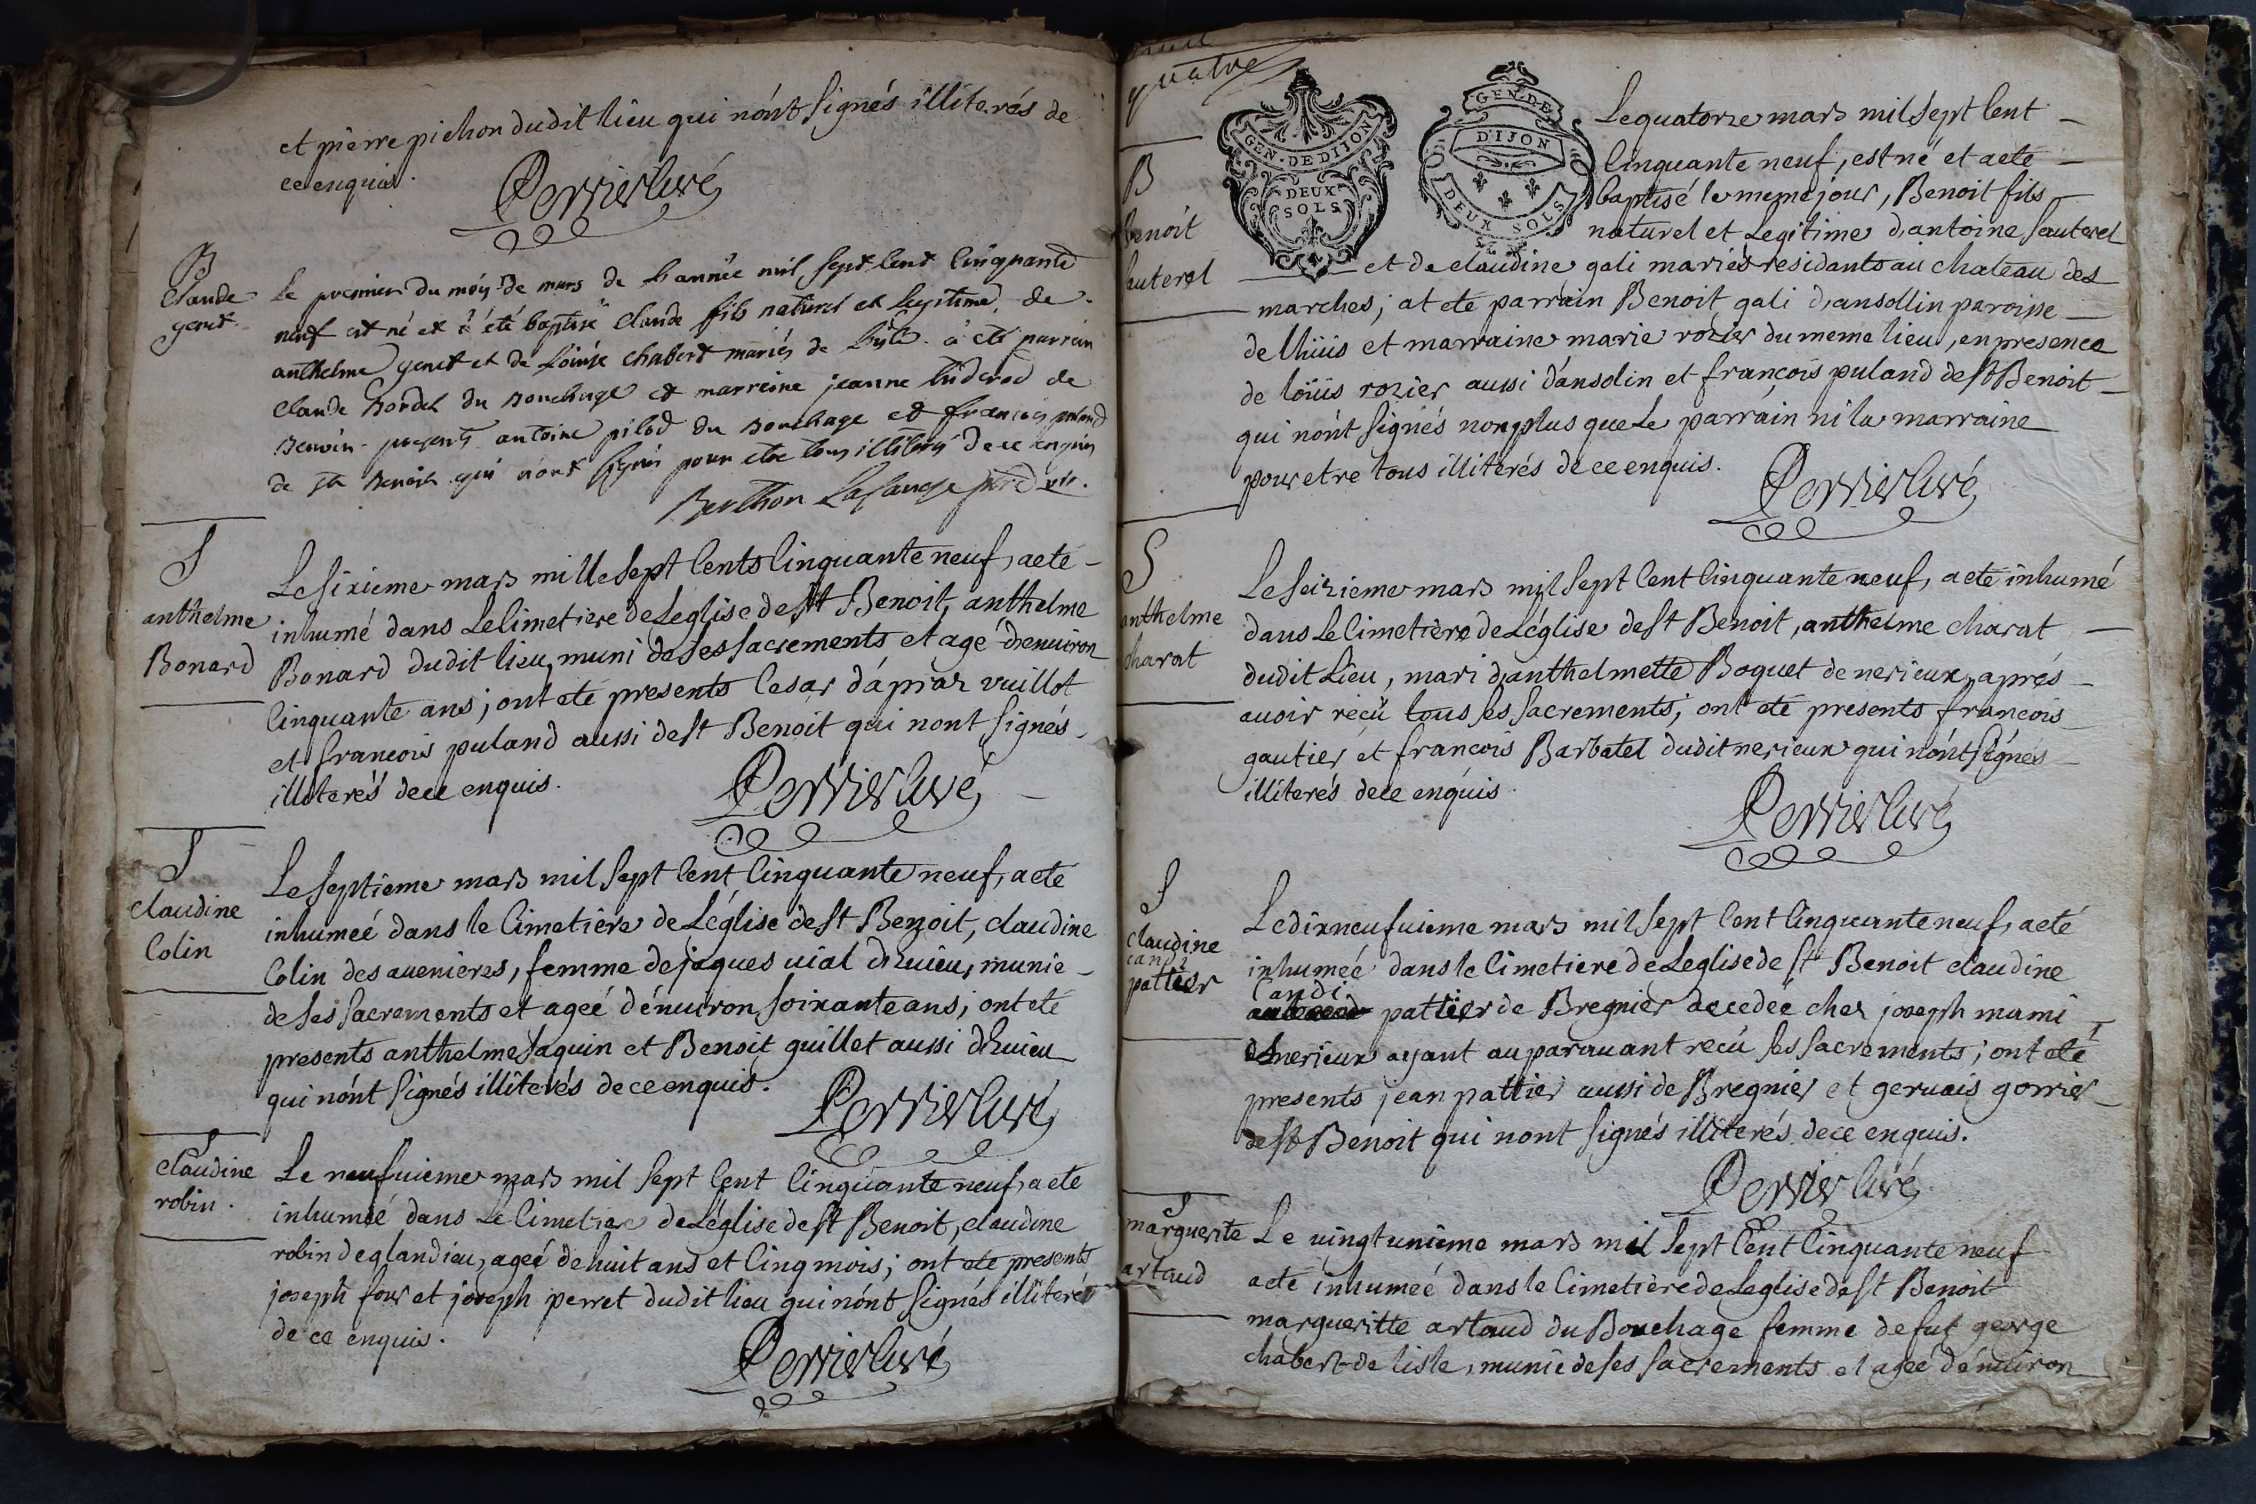 et pierre pichon dudit lieu qui nónt signés illiterés de
ce enquis.
Perrier Curé
B
Claude
genet
Le premier du móis de mars de L'année mil sept Cent Cinquante
neuf est né et à été baptisé Claude fils naturel et legitime de
anthelme genet et de Loüise Chabert mariés de
à été parrain
Claude Bordel du Bouchage et marreine jeanne de
presents antoine pilod du Bouchage et francois puland
de st Benoit qui n'ont signés pour etre tous illiterés de ce enquis
S
anthelme
Bonard
Le sixieme mars mille sept Cents Cinquante neuf, a eté
inhumé dans Le Cimetiere de Leglise de st Benoit, anthelme
Bonard dudit lieu, muni de ses sacrements et agé d'enuiron
Cinquante ans; ont eté presents Cesar d'apraz vuillot
et francois puland aussi de st Benoit qui nont signés
illiterés de ce enquis.
Perrier Curé
S
Claudine
Colin
Le septieme mars mil sept Cent Cinquante neuf, a eté
inhumeé dans le Cimetière de Léglise de st Benoit, claudine
Colin des auenieres, femme de jaques uial d'huieu, munie
de ses sacrements et ageé d'énuiron soixante ans; ont eté
presents anthelme saquin et Benoit guillet aussi d'huieu
qui nónt signés illiterés de ce enquis.
Perrier Curé
S
claudine
robin.
Le neufuieme mars mil sept Cent Cinquante neuf, a eté
inhumeé dans Le Cimetiere de Léglise de st Benoit, claudine
robin de glandieu, ageé de huit ans et Cinq mois; ont eté presents
joseph four et joseph perret dudit lieu qui nónt signés illiterés
de ce enquis.
Perrier Curé
quatre
GEN. DE DIJON
DEUX
SOLS
GEN. DE
DIJON
DEUX SOLS
B
Benoit
sauteret
Le quatorze mars mil sept Cent
Cinquante neuf, est né et a eté
baptisé le meme jour, Benoit fils
naturel et Legitime d'antoine sauteret
et de claudine gali mariés residants au chateau des
marches; at eté parrain Benoit gali d'ansollin paroisse
de lhüis et marraine marie rozier du meme lieu, en presence
de loüis rozier aussi d'ansolin et françois puland de st Benoit
qui nónt signés non plus que Le parrain ni la marraine
pour etre tous illiterés de ce enquis.
Perrier Curé
S
anthelme
charat
Le seizieme mars mil sept Cent Cinquante neuf, a eté inhumé
dans Le Cimetière de Léglise de st Benoit, anthelme charat
dudit Lieu, mari d'anthelmette Boquet de nerieux, aprés
auoir reçu tous ses sacrements; ont eté presents francois
gautier et francois Barbatel dudit nerieux qui nónt signés
illiterés de ce enquis.
Perrier Curé
S
claudine
candi
pattier
Le dixneufuieme mars mil sept Cent Cinquante neuf, a eté
inhumeé dans le Cimetiere de Leglise de st Benoit claudine
Candi
pattier de Bregnier decedeé chez joseph mami
de nerieux ayant auparauant reçu ses sacrements; ont eté
presents jean pattier aussi de Bregnier et geruais gorrier
de st Benoit qui nont signés illiterés de ce enquis.
Perrier Curé
S
marguerite
artaud
Le uingtunieme mars mil sept Cent Cinquante neuf
a eté inhumeé dans le Cimetière de Leglise de st Benoit
margueritte artaud du Bouchage femme de fut george
chabert de lisle, munie de ses sacrements et ageé d'énuiron